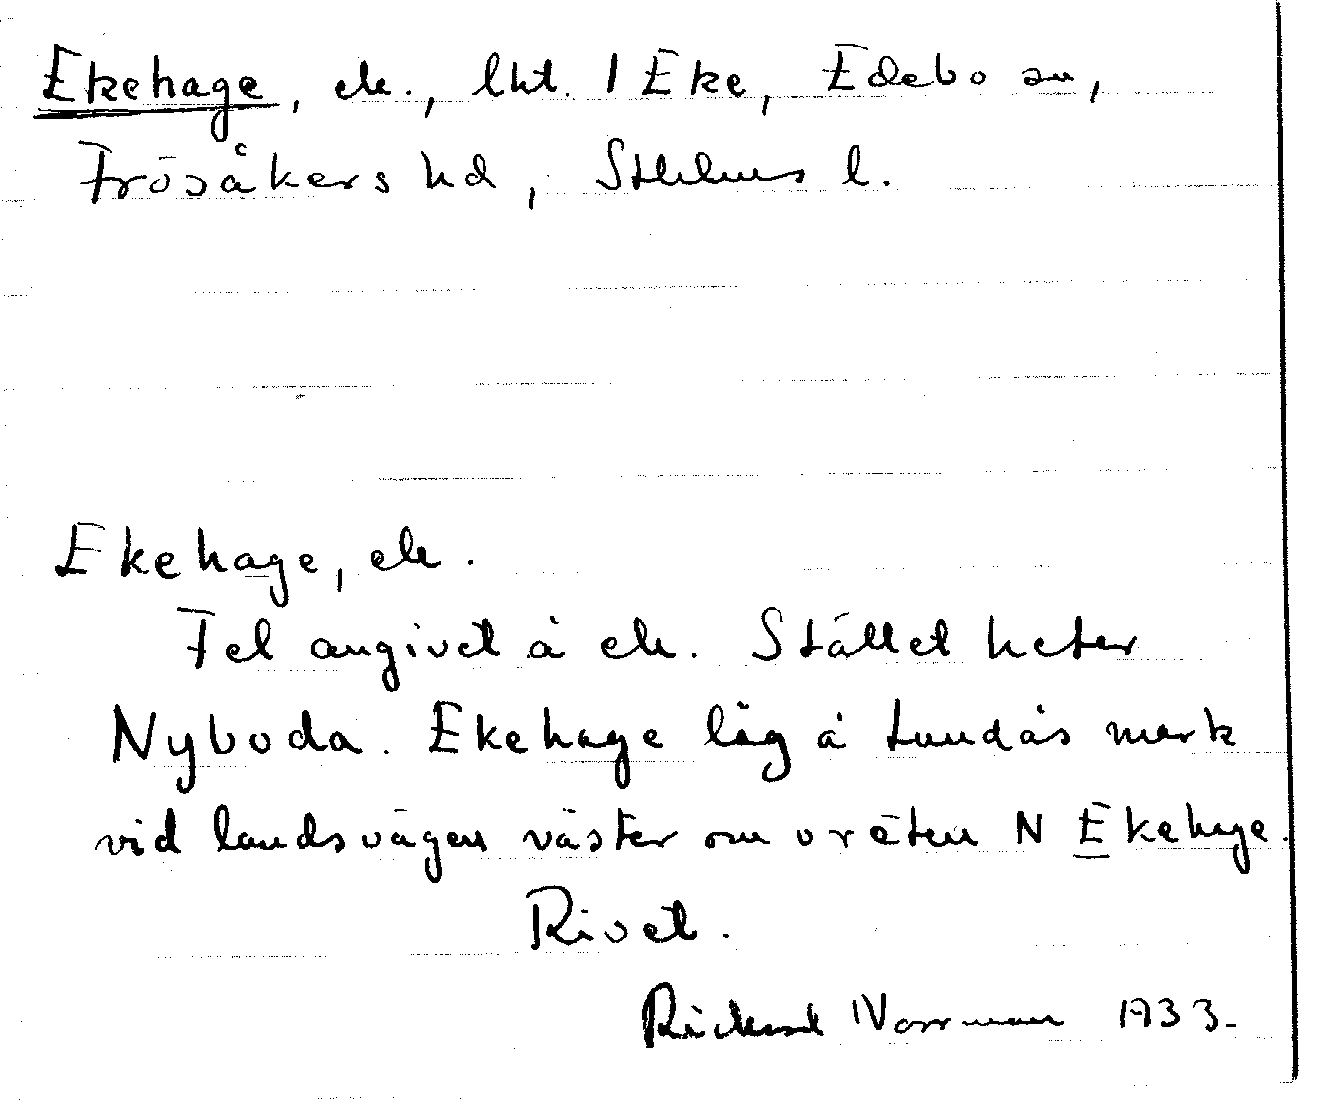 Ekehage, ek., lht. 1 Eke, Edebo sn,
Frösåkers hd, Sthlms l.
Ekehage, ek.
Fel angivet å ek. Stället heter
Nyboda. Ekehage låg å Lundås mark
vid landsvägen väster om vreten N Ekehage.
Rivet.
Rickard Norrman 1933.